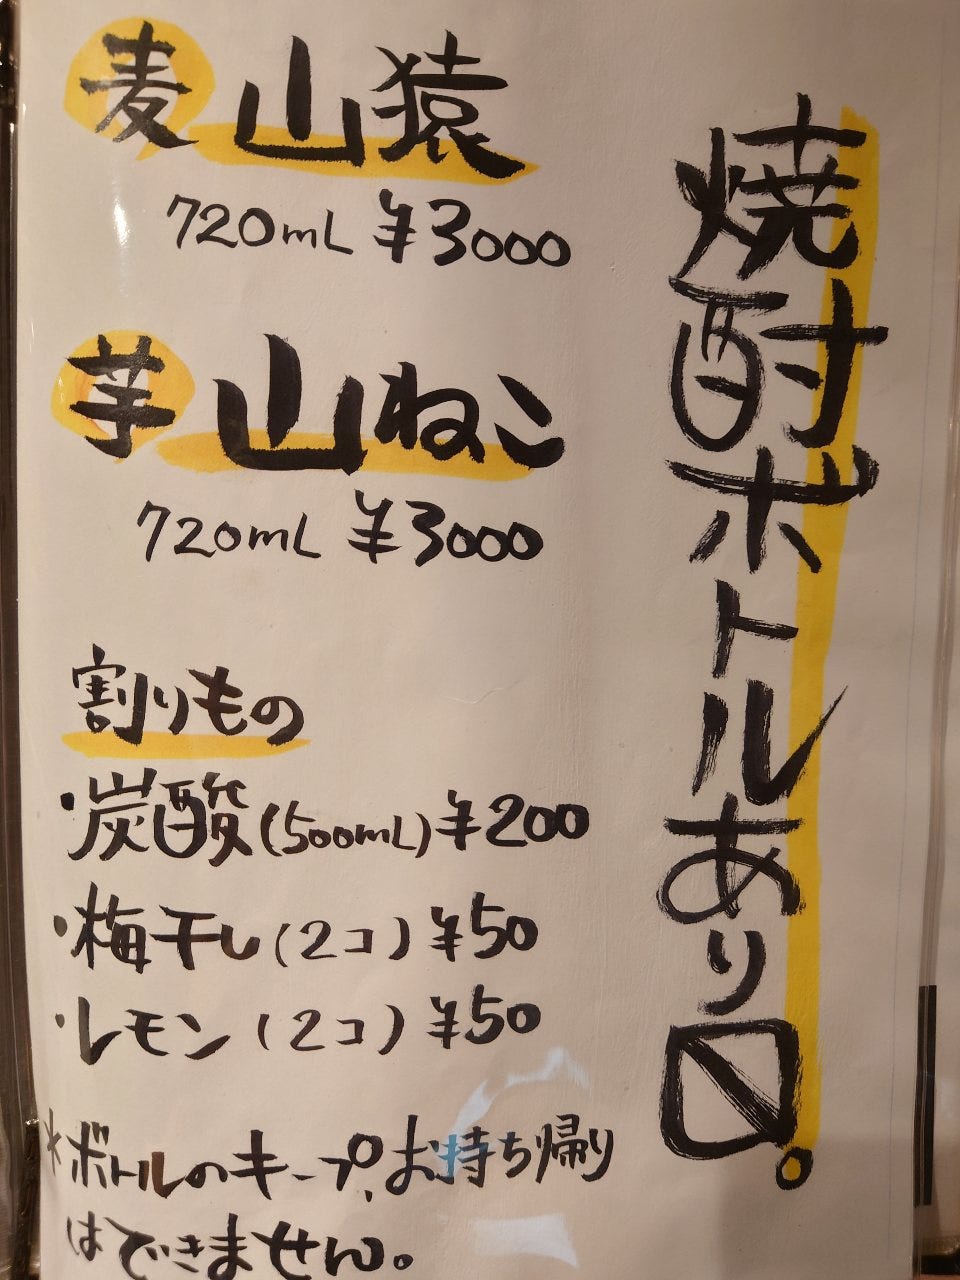 焼酎ボトルあり〼。
麦 山猿
720mL ¥3000
芋 山ねこ
720mL ¥3000
割りもの
・炭酸(500mL)¥200
・梅干し(2コ)¥50
・レモン(2コ)¥50
*ボトルのキープ、お持ち帰り
はできません。